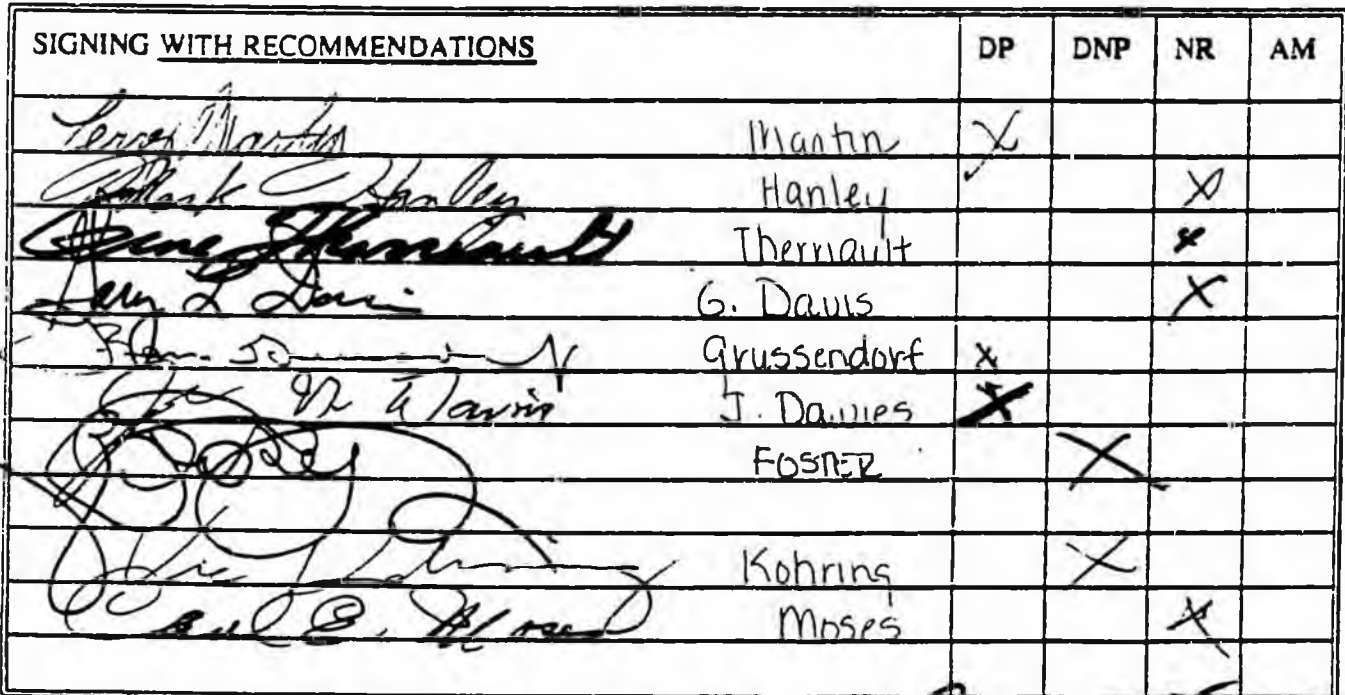 SIGNING WITH RECOMMENDATIONS DP DNP NR AM
Terry Martin Martin X
Mark Hanley Hanley X
Gene Therriault Therriault X
Gary L Davis G. Davis X
Grussendorf X
J. Davies X
FOSTER X
Kohring X
Carl E. Moses Moses X